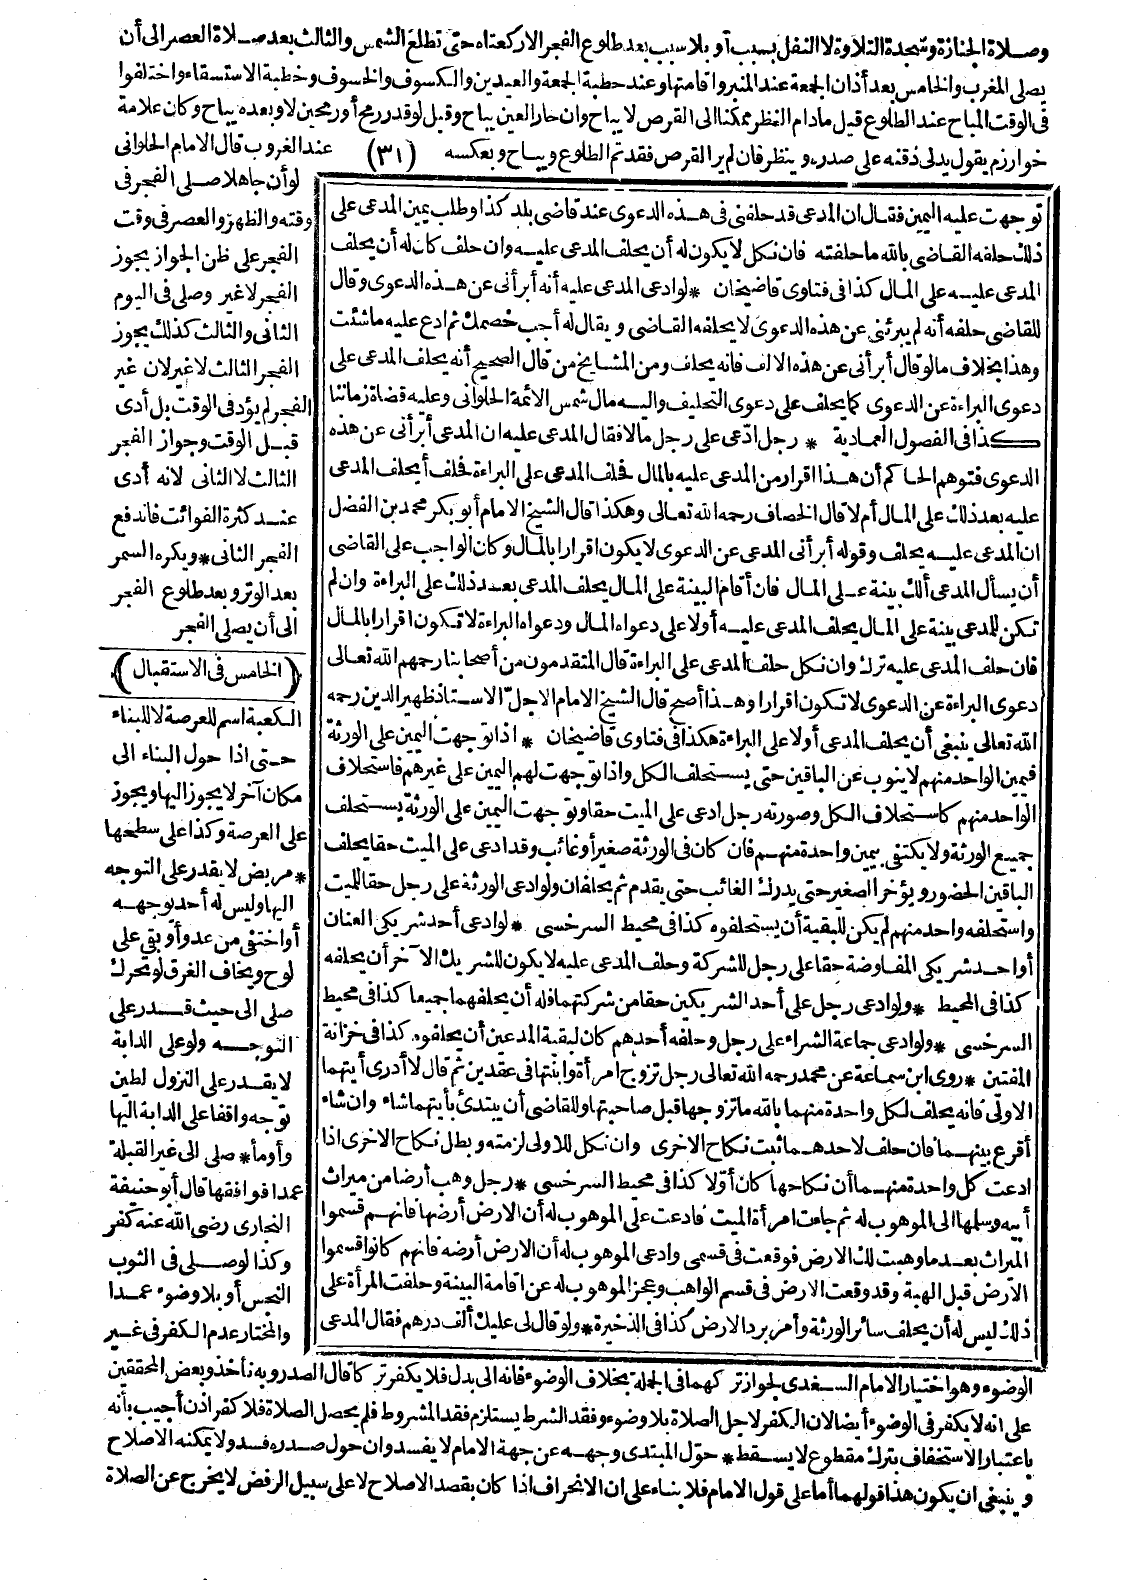 وصلاة الجنازة وسجدة التلاوة لا النفل بسبب أو بلا سبب بعد طلوع الفجر الا ركعتاه حتى تطلع الشمس والثالث بعد صلاة العصر الى أن
يصلى المغرب والخامس بعد أذان الجمعة عند المنبر واقامتها وعند خطبة الجمعة والعيدين والكسوف والخسوف وخطبة الاستسقاء واختلفوا
فى الوقت المباح عند الطلوع قيل مادام النظر ممكنا الى القرص لا يباح وان حار العين يباح وقيل لو قدر رمح أو رمحين لا وبعده يباح وكان علامة
خوارزم يقول يدلى ذقنه على صدره وينظر فان لم ير القرص فقد تم الطلوع ويباح وبعكسه (٣١) عند الغروب قال الامام الحلوانى
لو أن جاهلا صلى الفجر فى
وقته والظهر والعصر فى وقت
الفجر على ظن الجواز يجوز
الفجر لا غير وصلى فى اليوم
الثانى والثالث كذلك يجوز
الفجر الثالث لا غير لان غير
الفجر لم يؤد فى الوقت بل أدى
قبل الوقت وجواز الفجر
الثالث لا الثانى لانه أدى
عند كثرة الفوائت فاندفع
الفجر الثانى * ويكره السمر
بعد الوتر وبعد طلوع الفجر
الى أن يصلى الفجر
(الخامس فى الاستقبال)
الكعبة اسم للعرصة لا للبناء
حتى اذا حول البناء الى
مكان آخر لا يجوز اليها ويجوز
على العرصة وكذا على سطحها
* مريض لا يقدر على التوجه
اليها وليس له أحد يوجهه
أو اختفى من عدو أو بقى على
لوح ويخاف الغرق لو تحرك
صلى الى حيث قدر على
التوجه ولو على الدابة
لا يقدر على النزول لطين
توجه واقفا على الدابة اليها
وأومأ * صلى الى غير القبلة
عمدا فوافقها قال أبو حنيفة
النجارى رضى الله عنه كفر
وكذا لو صلى فى الثوب
النجس أو بلا وضوء عمدا
والمختار عدم الكفر فى غير
توجهت عليه اليمين فقال ان المدعى قد حلفنى فى هذه الدعوى عند قاضى بلد كذا وطلب يمين المدعى على
ذلك حلفه القاضى بالله ما حلفته فان نكل لا يكون له أن يحلف المدعى عليه وان حلف كان له أن يحلف
المدعى عليه على المال كذا فى فتاوى قاضيخان * لو ادعى المدعى عليه أنه أبرأنى عن هذه الدعوى وقال
للقاضى حلفه أنه لم يبرئنى عن هذه الدعوى لا يحلفه القاضى ويقال له أجب خصمك ثم ادع عليه ما شئت
وهذا بخلاف ما لو قال أبرأنى عن هذه الالف فانه يحلف ومن المشايخ من قال الصحيح أنه يحلف المدعى على
دعوى البراءة عن الدعوى كما يحلف على دعوى التحليف واليه مال شمس الأئمة الحلوانى وعليه قضاة زماننا
كذا فى الفصول العمادية * رجل ادّعى على رجل مالا فقال المدعى عليه ان المدعى أبرأنى عن هذه
الدعوى فتوهم الحاكم أن هذا اقرار من المدعى عليه بالمال فحلف المدعى على البراءة فحلف أيحلف المدعى
عليه بعد ذلك على المال أم لا قال الخصاف رحمه الله تعالى وهكذا قال الشيخ الامام أبو بكر محمد بن الفضل
ان المدعى عليه يحلف وقوله أبرأنى المدعى عن الدعوى لا يكون اقرارا بالمال وكان الواجب على القاضى
أن يسأل المدعى ألك بينة على المال فان أقام البينة على المال يحلف المدعى بعد ذلك على البراءة وان لم
تكن للمدعى بينة على المال يحلف المدعى عليه أولا على دعواه المال ودعواه البراءة لا تكون اقرارا بالمال
فان حلف المدعى عليه ترك وان نكل حلف المدعى على البراءة قال المتقدمون من أصحابنا رحمهم الله تعالى
دعوى البراءة عن الدعوى لا تكون اقرارا وهذا أصح قال الشيخ الامام الاجلّ الاستاذ ظهير الدين رحمه
الله تعالى ينبغى أن يحلف المدعى أولا على البراءة هكذا فى فتاوى قاضيخان * اذا توجهت اليمين على الورثة
فيمين الواحد منهم لا ينوب عن الباقين حتى يستحلف الكل واذا توجهت لهم اليمين على غيرهم فاستحلاف
الواحد منهم كاستحلاف الكل وصورته رجل ادعى على الميت حقا وتوجهت اليمين على الورثة يستحلف
جميع الورثة ولا يكتفى بيمين واحدة منهم فان كان فى الورثة صغير أو غائب وقد ادعى على الميت حقا يحلف
الباقين الحضور ويؤخر الصغير حتى يدرك الغائب حتى يقدم ثم يحلفان ولو ادعى الورثة على رجل حقا للميت
واستحلفه واحد منهم لم يكن للبقية أن يستحلفوه كذا فى محيط السرخسى * لو ادعى أحد شريكى العنان
أو أحد شريكى المفاوضة حقا على رجل للشركة وحلف المدعى عليه لا يكون للشريك الآخر أن يحلفه
كذا فى المحيط * ولو ادعى رجل على أحد الشريكين حقا من شركتهما فله أن يحلفهما جميعا كذا فى محيط
السرخسى * ولو ادعى جماعة الشراء على رجل وحلفه أحدهم كان لبقية المدعين أن يحلفوه كذا فى خزانة
المفتين * روى ابن سماعة عن محمد رحمه الله تعالى رجل تزوج امرأة وابنتها فى عقدين ثم قال لا أدرى أيتهما
الاولى فانه يحلف لكل واحدة منهما بالله ما تزوجها قبل صاحبتها وللقاضى أن يبتدئ بأيتهما شاء وان شاء
أقرع بينهما فان حلف لاحدهما ثبت نكاح الاخرى وان نكل للاولى لزمته وبطل نكاح الاخرى اذا
ادعت كل واحدة منهما أن نكاحها كان أوّلا كذا فى محيط السرخسى * رجل وهب أرضا من ميراث
أبيه وسلمها الى الموهوب له ثم جاءت امرأة الميت فادعت على الموهوب له أن الارض أرضها فانهم قسموا
الميراث بعد ما وهبت لك الارض فوقعت فى قسمى وادعى الموهوب له أن الارض أرضه فانهم كانوا قسموا
الارض قبل الهبة وقد وقعت الارض فى قسم الواهب وعجز الموهوب له عن اقامة البينة وحلفت المرأة على
ذلك ليس له أن يحلف سائر الورثة وأمر برد الارض كذا فى الذخيرة * ولو قال لى عليك ألف درهم فقال المدعى
الوضوء وهو اختيار الامام السغدى لجواز تركهما فى الجملة بخلاف الوضوء فانه الى بدل فلا يكفر تركا قال الصدر وبه نأخذ وبعض المحققين
على انه لا يكفر فى الوضوء أيضا لان الكفر لاجل الصلاة بلا وضوء وفقد الشرط يستلزم فقد المشروط فلم يحصل الصلاة فلا كفر اذن أجيب بأنه
باعتبار الاستخفاف بترك مقطوع لا يسقط * حوّل المبتدى وجهه عن جهة الامام لا يفسد وان حول صدره فسد ولا يمكنه الاصلاح
وينبغى ان يكون هذا قولهما أما على قول الامام فلا بناء على ان الانحراف اذا كان بقصد الاصلاح لا على سبيل الرفض لا يخرج عن الصلاة